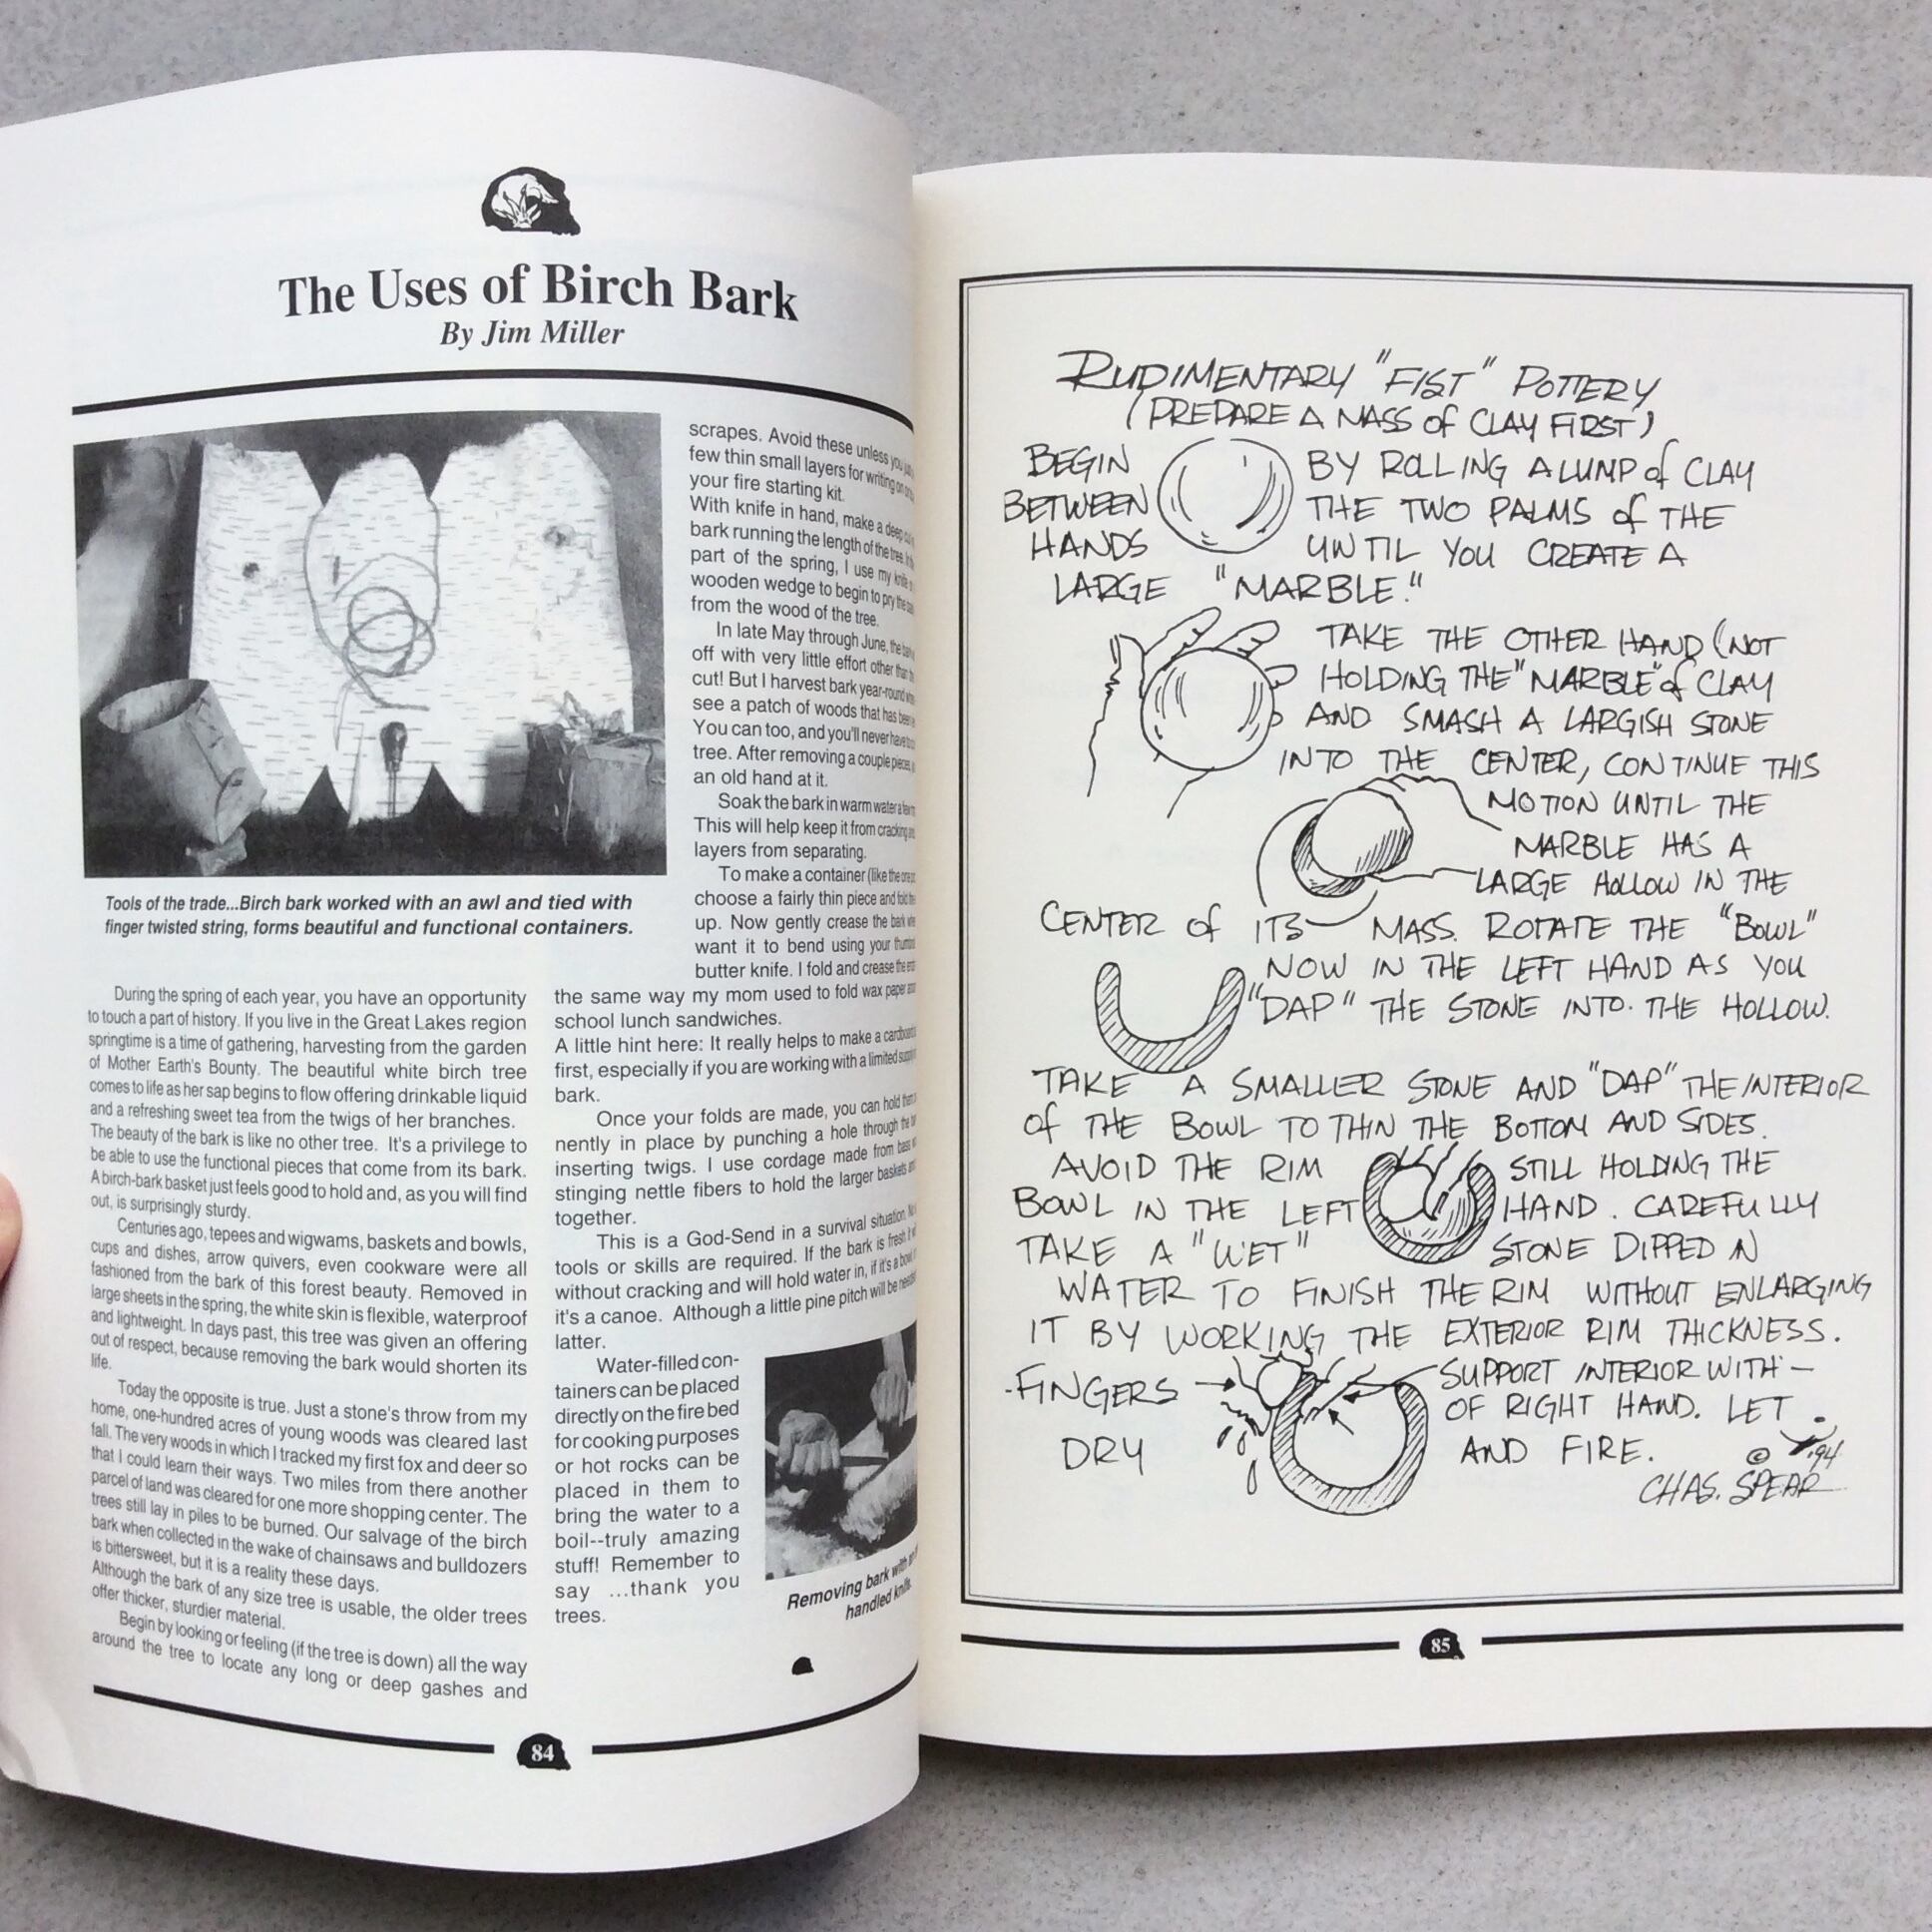 The Uses of Birch Bark
By Jim Miller
Tools of the trade...Birch bark worked with an awl and tied with
finger twisted string, forms beautiful and functional containers.
During the spring of each year, you have an opportunity
to touch a part of history. If you live in the Great Lakes region
springtime is a time of gathering, harvesting from the garden
of Mother Earth's Bounty. The beautiful white birch tree
comes to life as her sap begins to flow offering drinkable liquid
and a refreshing sweet tea from the twigs of her branches.
The beauty of the bark is like no other tree. It's a privilege to
be able to use the functional pieces that come from its bark.
A birch-bark basket just feels good to hold and, as you will find
out, is surprisingly sturdy.
Centuries ago, tepees and wigwams, baskets and bowls,
cups and dishes, arrow quivers, even cookware were all
fashioned from the bark of this forest beauty. Removed in
large sheets in the spring, the white skin is flexible, waterproof
and lightweight. In days past, this tree was given an offering
out of respect, because removing the bark would shorten its
life.
Today the opposite is true. Just a stone's throw from my
home, one-hundred acres of young woods was cleared last
fall. The very woods in which I tracked my first fox and deer so
that I could learn their ways. Two miles from there another
parcel of land was cleared for one more shopping center. The
trees still lay in piles to be burned. Our salvage of the birch
bark when collected in the wake of chainsaws and bulldozers
is bittersweet, but it is a reality these days.
Although the bark of any size tree is usable, the older trees
offer thicker, sturdier material.
Begin by looking or feeling (if the tree is down) all the way
around the tree to locate any long or deep gashes and
scrapes. Avoid these unless you
few thin small layers for writing on
your fire starting kit.
With knife in hand, make a deep
bark running the length of the tree.
part of the spring, I use my knife
wooden wedge to begin to pry the
from the wood of the tree.
In late May through June, the
off with very little effort other than
cut! But I harvest bark year-round
see a patch of woods that has been
You can too, and you'll never have
tree. After removing a couple pieces,
an old hand at it.
Soak the bark in warm water a few
This will help keep it from cracking
layers from separating.
To make a container (like the one
choose a fairly thin piece and fold the
up. Now gently crease the bark
want it to bend using your
butter knife. I fold and crease the
the same way my mom used to fold wax paper
school lunch sandwiches.
A little hint here: It really helps to make a cardboard
first, especially if you are working with a limited supply
bark.
Once your folds are made, you can hold them
nently in place by punching a hole through the
inserting twigs. I use cordage made from
stinging nettle fibers to hold the larger baskets
together.
This is a God-Send in a survival situation.
tools or skills are required. If the bark is fresh it
without cracking and will hold water in, if it's a bowl,
it's a canoe. Although a little pine pitch will be
latter.
Water-filled con-
tainers can be placed
directly on the fire bed
for cooking purposes
or hot rocks can be
placed in them to
bring the water to a
boil--truly amazing
stuff! Remember to
say ...thank you
trees.
Removing bark with
handled knife.
84
RUDIMENTARY "FIST" POTTERY
(PREPARE A MASS of CLAY FIRST)
BEGIN BY ROLLING A LUMP of CLAY
BETWEEN THE TWO PALMS of THE
HANDS UNTIL YOU CREATE A
LARGE "MARBLE."
TAKE THE OTHER HAND (NOT
HOLDING THE "MARBLE" of CLAY
AND SMASH A LARGISH STONE
INTO THE CENTER, CONTINUE THIS
MOTION UNTIL THE
MARBLE HAS A
LARGE HOLLOW IN THE
CENTER of ITS MASS. ROTATE THE "BOWL"
NOW IN THE LEFT HAND AS YOU
"DAP" THE STONE INTO THE HOLLOW.
TAKE A SMALLER STONE AND "DAP" THE INTERIOR
of THE BOWL TO THIN THE BOTTOM AND SIDES.
AVOID THE RIM STILL HOLDING THE
BOWL IN THE LEFT HAND. CAREFULLY
TAKE A "WET" STONE DIPPED IN
WATER TO FINISH THE RIM WITHOUT ENLARGING
IT BY WORKING THE EXTERIOR RIM THICKNESS.
SUPPORT INTERIOR WITH —
-FINGERS OF RIGHT HAND. LET
DRY AND FIRE.
© '94
CHAS. SPEAR
85